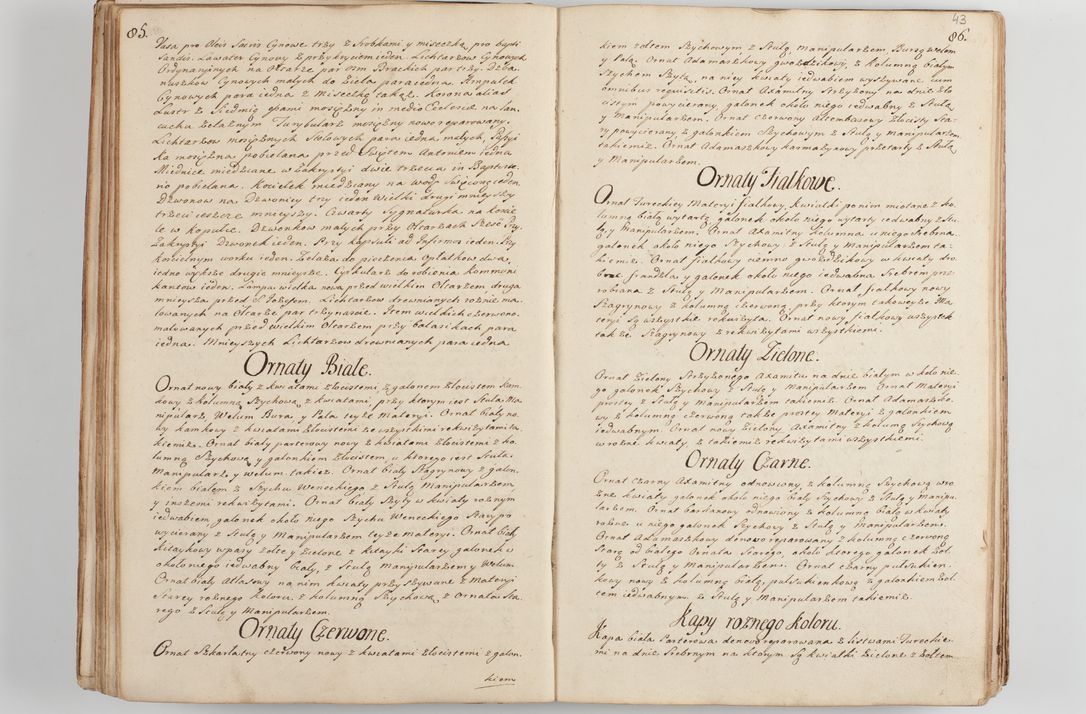 85.
Vasa pro Oleis Sacris Cynowe trzy z Srobkami y miseczką pro
Cynowy z przykryciem ieden. Lichtarzow Cynowych
Ordynaryinych na Ołtarze par Brackich par trzy. Dzba-
nuszkow Cynowych małych do Zieła para iedna. Ampułek
Cynowych para iedna z miseczką takąż. Korona alias
Lustr z Siedmią mosiężny in medio Ecclesiæ na łan-
cuchu żelaznym Turybularz mosiężny nowo reparowany.
Lichtarzow mosiężnych Stołowych para iedna, małych,
ka mosiężna pobielana przed Swiętem Antonim iedna
Miednice miedziane w Zakrystyi dwie trzecia in Baptiste-
rio pobielana. Kociełek miedziany na wodę Swięconą ieden.
Dzwonow na Dzwonicy trzy ieden Wielki drugi mnieyszy
trzeci ieszcze mnieyszy. Czwarty Sygnaturka na Kosciele
le w kopule. Dzwonkow małych przy Ołtarzach Szesc Przy
Zakrystyi Dzwonek ieden. Przy kapsuli ad Infirmos ieden. Przy
koscielnym worku ieden. Zelaza do pieczenia Opłatkow dwa,
iedno większe drugie mnieysze. Cyrkularz do robienia kommuni
kantow ieden. Lampa wielka nowa przed wielkim Ołtarzem, druga
mnieysza przed S. Jozefem. Lichtarzow drewnianych roznie ma-
lowanych na Ołtarze par trzynascie. Item wielkich czerwono
malowanych przed wielkim Ołtarzem przy balasikach para
iedna. Mnieyszych Lichtarzow drewnianych para iedna
Ornaty Białe.
Ornat nowy biały z kwiatami złocistemi z galonem złocistem kam-
kowy z kolumną Szychową z kwiatami, przy ktorym iest Stuła Ma-
nipularz, Welum Bursa y Pala teyże Materyi. Ornat biały no-
wy kamkowy z kwiatami złocistemi ze wszytkimi rekwizytami ta-
kiemiż. Ornat biały parterowy nowy z kwiatami złocistemi z ko-
lumną Szychową y galonkiem złocistem, u ktorego iest Stuła
Manipularz y Welum takież. Ornat biały Szagrynowy z galon-
kiem białem z Szychu Weneckiego z Stułą Manipularzem
y inszemi rekwizytami. Ornat biały Szyty w kwiaty roznym
iedwabiem, galonek około niego Szychu Weneckiego Stary po
wycierany z Stułą y Manipularzem teyże materyi. Ornat biały
kitaykowy w pasy zołte y zielone z kitayki Starey galonek
około niego iedwabny biały, z Stułą Manipularzem y Welum
Ornat biały Atłasowy na nim kwiaty przyszywane z Materyi
Starey roznego Koloru z kolumną Szychową z Ornatu Sta-
rego z Stułą y Manipularzem.
Ornaty Czerwone.
Ornat Szkarłatny czerwony nowy z kwiatami złocistemi z galon-
kiem
43
86.
kiem zołtem Szychowym z Stułą, Manipularzem Bursą Welum
y Palą. Ornat Adamaszkowy gwozdzikowy, z kolumną białym
Szychem Szytą, na niey kwiaty iedwabiem wyszywane cum
omnibus requisitis. Ornat Axamitny Strzyżony na dnie zło
cistym powycierany, galonek około niego iedwabny z Stułą
y Manipularzem. Ornat czerwony Altembasowy złocisty Sta-
ry powycierany z galonkiem Szychowym z Stułą y manipularzem
takiemiż. Ornat Adamaszkowy karmazynowy, przetarty z Stułą
y Manipularzem.
Ornaty Fiałkowe.
Ornat Tureckiey Materyi fiałkowy, kwiatki po nim miotane z ko-
lumną białą wytartą galonek około niego wytarty iedwabny z Stu-
łą, y Manipularzem. Ornat Axamitny Kolumna u niego Srebrna
galonek około niego Szychowy z Stułą y Manipularzem ta-
kiemiż. Ornat fiałkowy ciemno gwozdzikowy w kwiaty dro-
bne frandzla y galonek około niego iedwabna Srebrem prze
robiana z Stułą y Manipularzem. Ornat fiałkowy nowy
Szagrynowy z kolumną czerwoną przy ktorym takoweyże Ma-
teryi Są wszystkie rekwizyta. Ornat nowy fiałkowy wszystek
także Szagrynowy z rekwizytami wszystkiemi.
Ornaty Zielone.
Ornat Zielony Strzyżonego Axamitu na dnie białym w koło nie-
go galonek Szychowy z Stułą y Manipularzem Ornat Materyi
prostey z Stułą y Manipularzem takiemiż. Ornat Adamaszko-
wy z kolumną czerwoną także prostey Materyi z galonkiem
iedwabnym. Ornat nowy Zielony Axamitny z kolumną Szychową
w rozne kwiaty z takiemiż rekwizytami wszystkiemi.
Ornaty Czarne.
Ornat Czarny Axamitny odnowiony, z kolumną Szychową w ro-
zne kwiaty galonek około niego biały Szychowy z Stułą y Manipu-
larzem. Ornat barchanowy odnowiony z kolumną białą w kwiaty
rozne u niego galonek Szychowy z Stułą y Manipularzem.
Ornat Adamaszkowy denovo reparowany z kolumną czerwoną
Starą od białego Ornatu Starego, około ktorego galonek żoł-
ty z Stułą y Manipularzem. Ornat czarny pułsukien-
kowy nowy z kolumną białą, pułsukienkową z galonkiem żoł-
tem iedwabnym z Stułą y Manipularzem takiemiż.
Kapy roznego Koloru.
Kapa biała Parterowa denovo reparowana z listwami Tureckie-
mi na dnie Srebrnym na ktorym Są kwiatki Zielone z zołtem